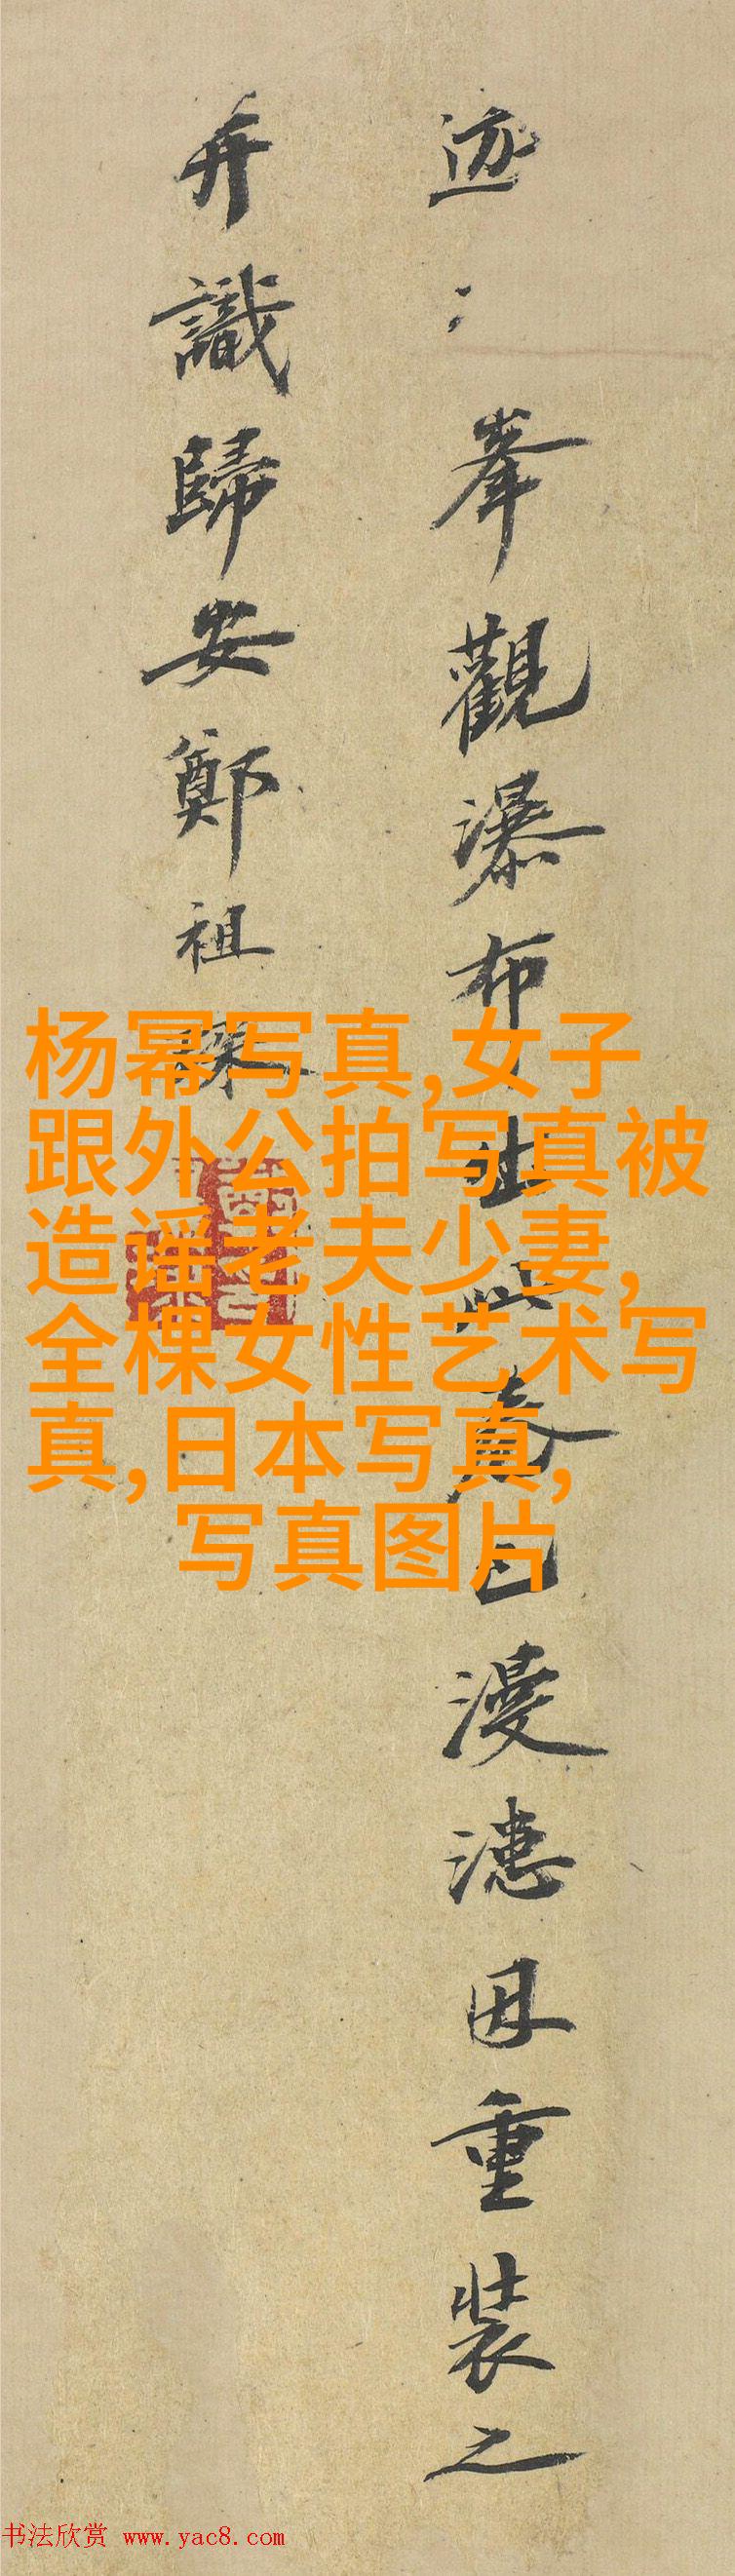 迹〻峯觀瀑布
卷已漫漶因重裝之
弆識歸安鄭祖琛
杨幂写真,女子
跟外公拍写真被
造谣老夫少妻,
全棵女性艺术写
真,日本写真,
写真图片
书法欣赏 www.yac8.com